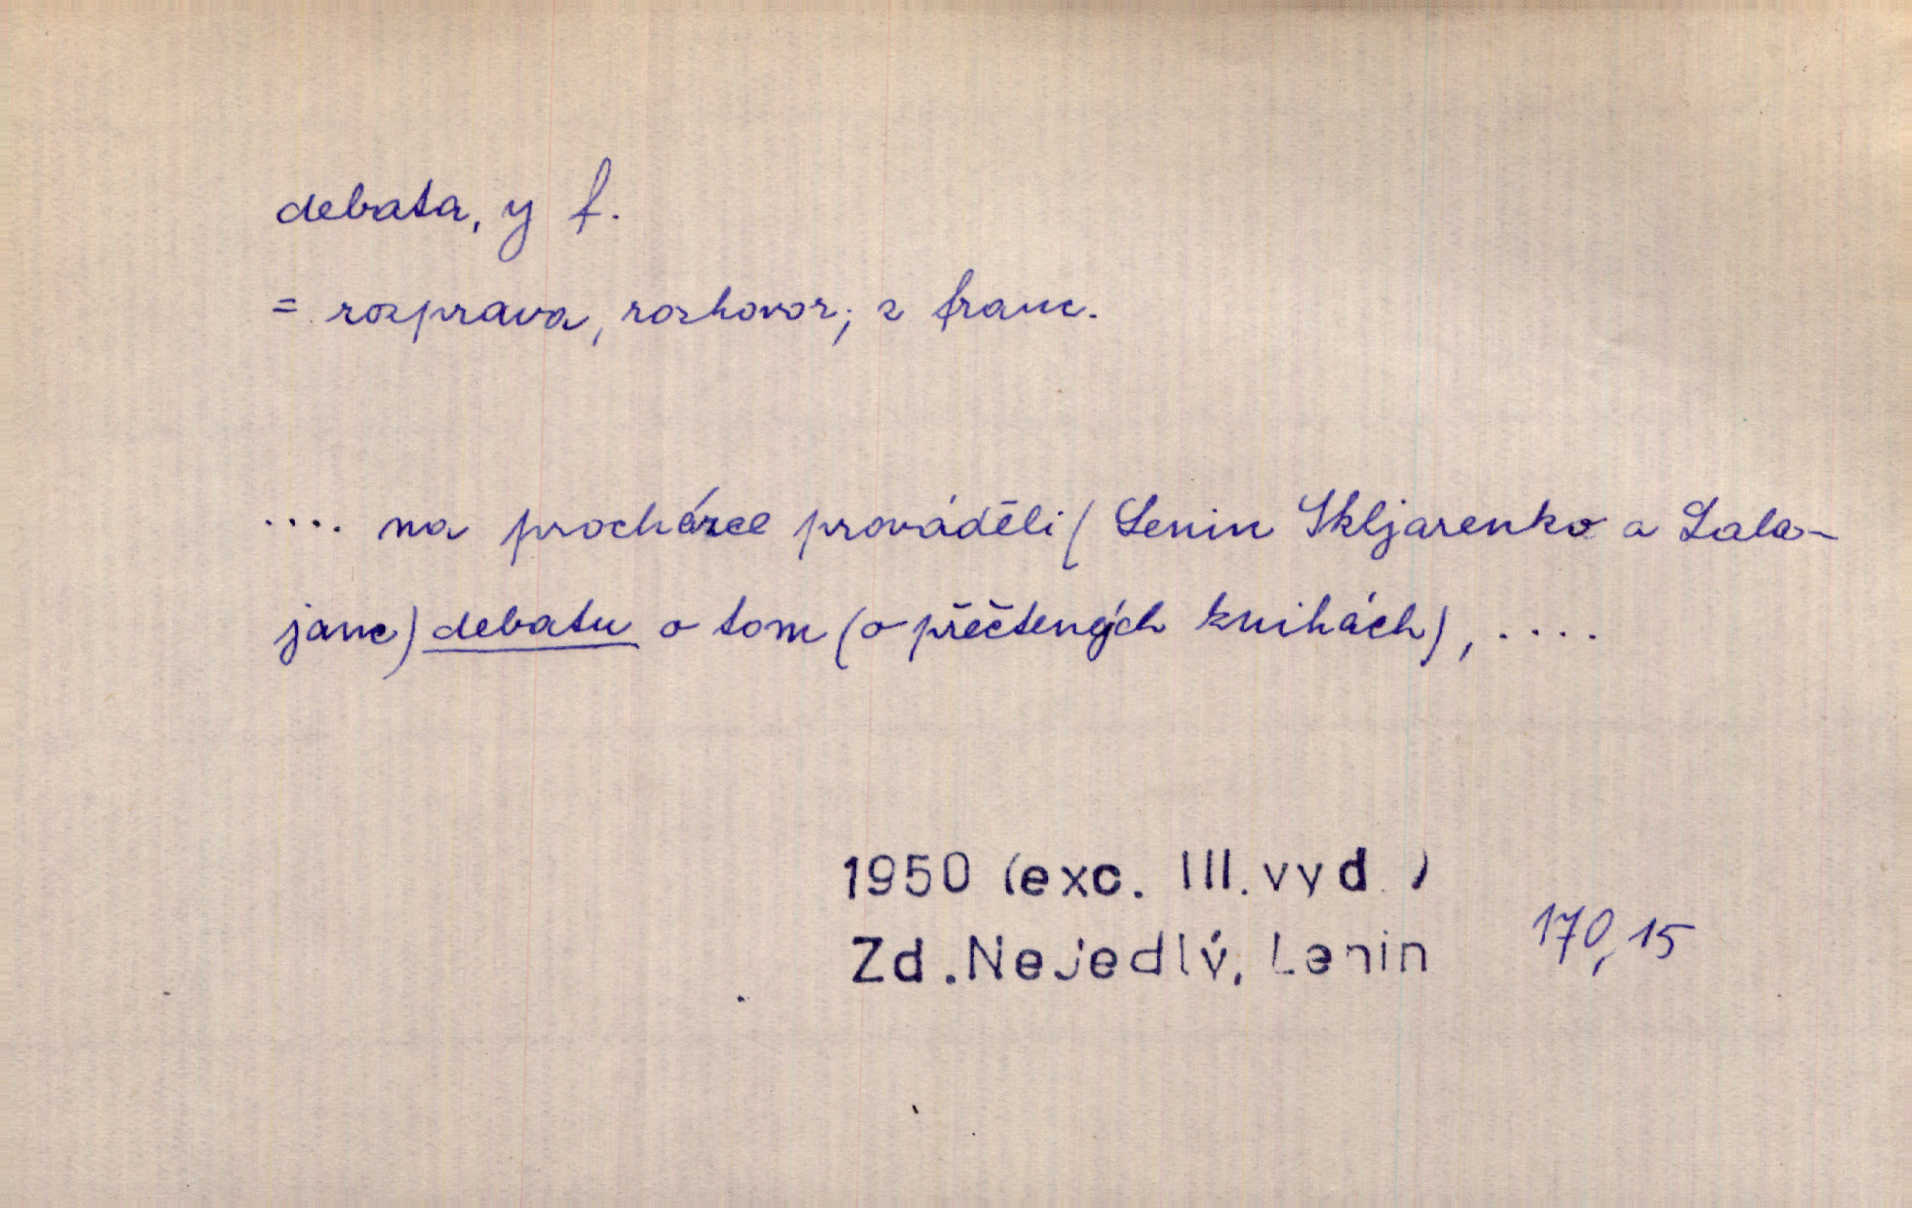 debata, y f.
= rozprava, rozhovor; z franc.
.... na procházce prováděli (Lenin Skljarenko a Lala-
janc) debatu o tom (o přečtených knihách), ....
1950 (exc. III. vyd.)
Zd. Nejedlý, Lenin 170,15